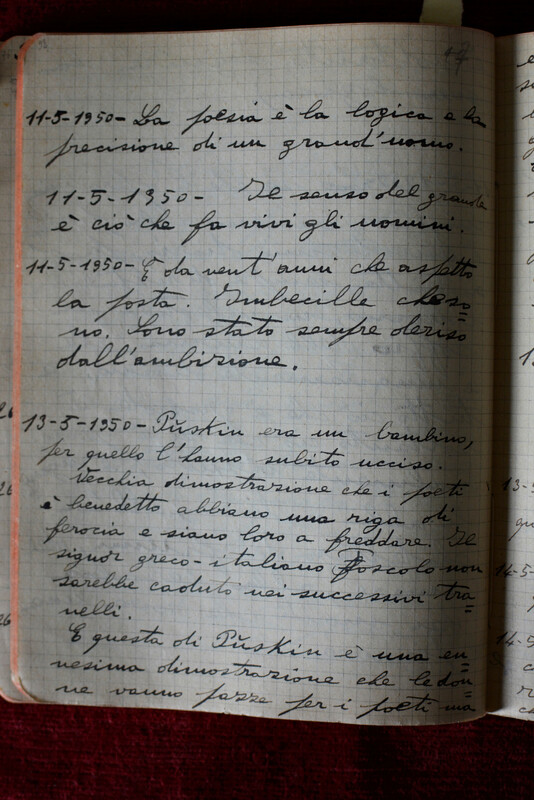 17
11-5-1950- La poesia è la logica e la
precisione di un grand'uomo.
11-5-1950- Il senso del grande
è ciò che fa vivi gli uomini.
11-5-1950- È da vent'anni che aspetto
la posta. Imbecille che so=
no. Sono stato sempre deriso
dall'ambizione.
13-5-1950- Pŭskin era un bambino,
per quello l'hanno subito ucciso.
Vecchia dimostrazione che i poeti
è benedetto abbiano una riga di
ferocia e siano loro a freddare. Il
signor greco-italiano Foscolo non
sarebbe caduto nei successivi tra=
nelli.
E questa di Pŭskin è una en=
nesima dimostrazione che le don=
ne vanno pazze per i poeti ma
26
26
26
13-5
14-5
14-5